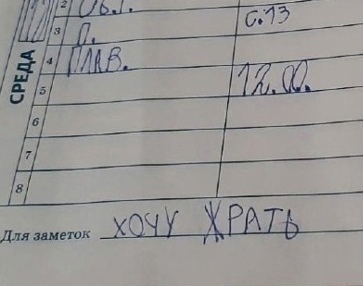 2 Общ. с.13
3 П.
4 ПЛАВ.
СРЕДА
5 12.00.
6
7
8
Для заметок ХОЧУ ЖРАТЬ